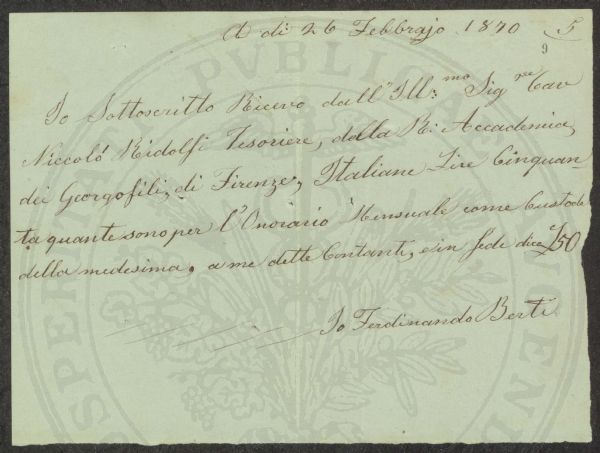 A di 26 Febbrajo 1870
5
9
Io Sottoscritto Ricevo dall' Ill:mo Sigre Cav
Niccoló Ridolfi Tesoriere, della R: Accademia,
dei Georgofili, di Firenze, Italiane Lire Cinquan-
ta quante sono per l'Onorario Mensuale come Custode
della medesima, a me dette Contanti, e in fede dico £50
Io Ferdinando Berti